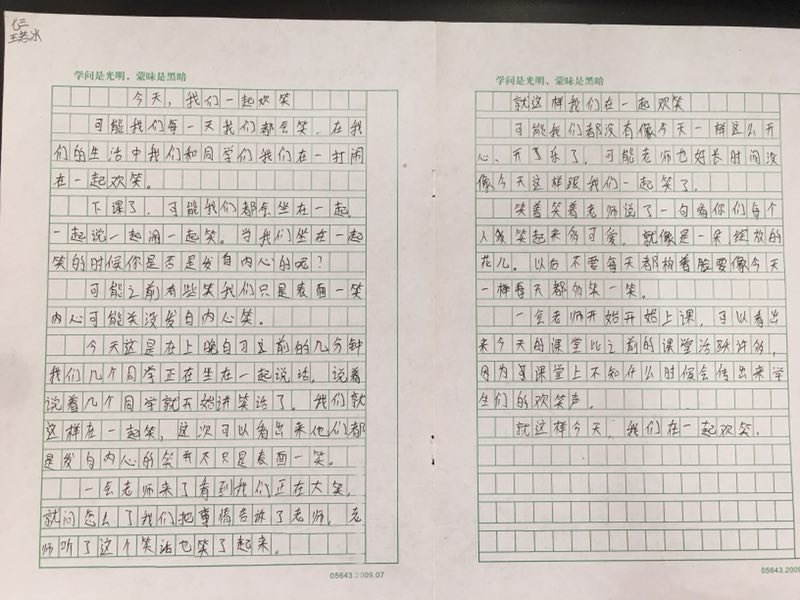 七三
王若冰
学问是光明，蒙昧是黑暗
今天，我们一起欢笑
可能我们每一天我们都会笑，在我
们的生活中我们和同学们我们在一打闹
在一起欢笑。
下课了，可能我们都会坐在一起，
一起说一起闹一起笑。当我们坐在一起
笑的时候你是否是发自内心的呢？
可能之前有些笑我们只是表面一笑
内心可能并没发自内心笑。
今天这是在上晚自习之前的几分钟
我们几个同学正在坐在一起说话，说着
说着几个同学就开始讲笑话了。我们就
这样在一起笑，这次可以看出来他们都
是发自内心的笑并不只是表面一笑。
一会老师来了看到我们正在大笑，
就问怎么了我们把事情告诉了老师，老
师听了这个笑话也笑了起来。
05643.2009.07
学问是光明，蒙昧是黑暗
就这样我们在一起欢笑
可能我们都没有像今天一样这么开
心、开了乐了，可能老师也好长时间没
像今天这样跟我们一起笑了。
笑着笑着老师说了一句看你们每个
人笑起来多可爱，就像是一朵绽放的
花儿。以后不要每天都板着脸要像今天
一样每天都笑一笑。
一会老师开始开始上课，可以看出
来今天的课堂比之前的课堂活跃许多，
因为课堂上不知什么时候会传出来学
生们的欢笑声。
就这样今天，我们在一起欢笑。
05643.2009